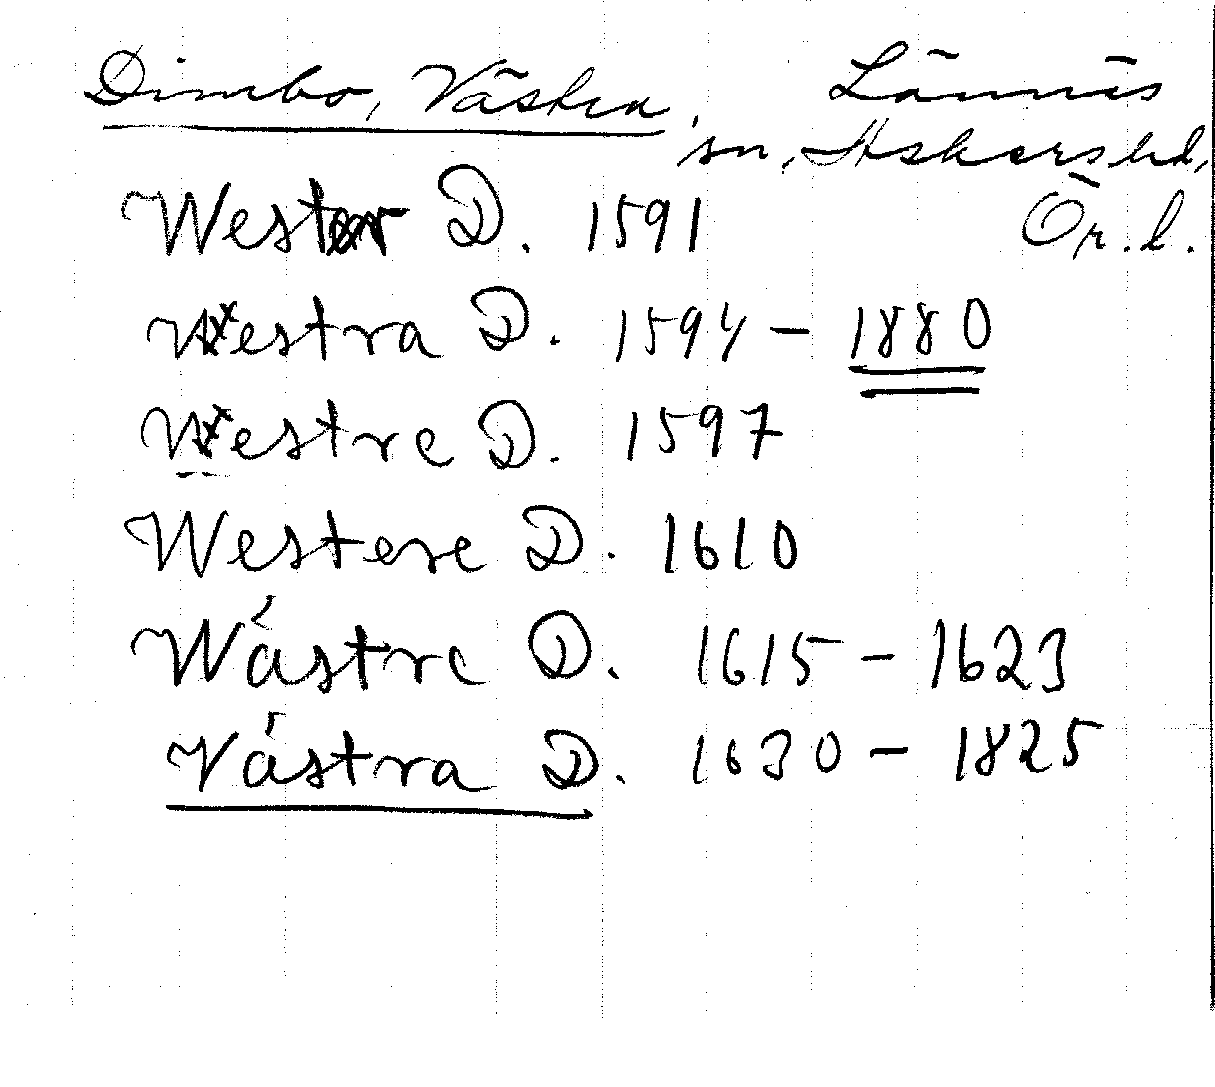 Dimbo, Västra, Lännäs
sn, Askers hd,
Ör. l.
Wester D. 1591
Westra D. 1594 – 1880
Westre D. 1597
Westere D. 1610
Wästre D. 1615 – 1623
Västra D. 1630 – 1825